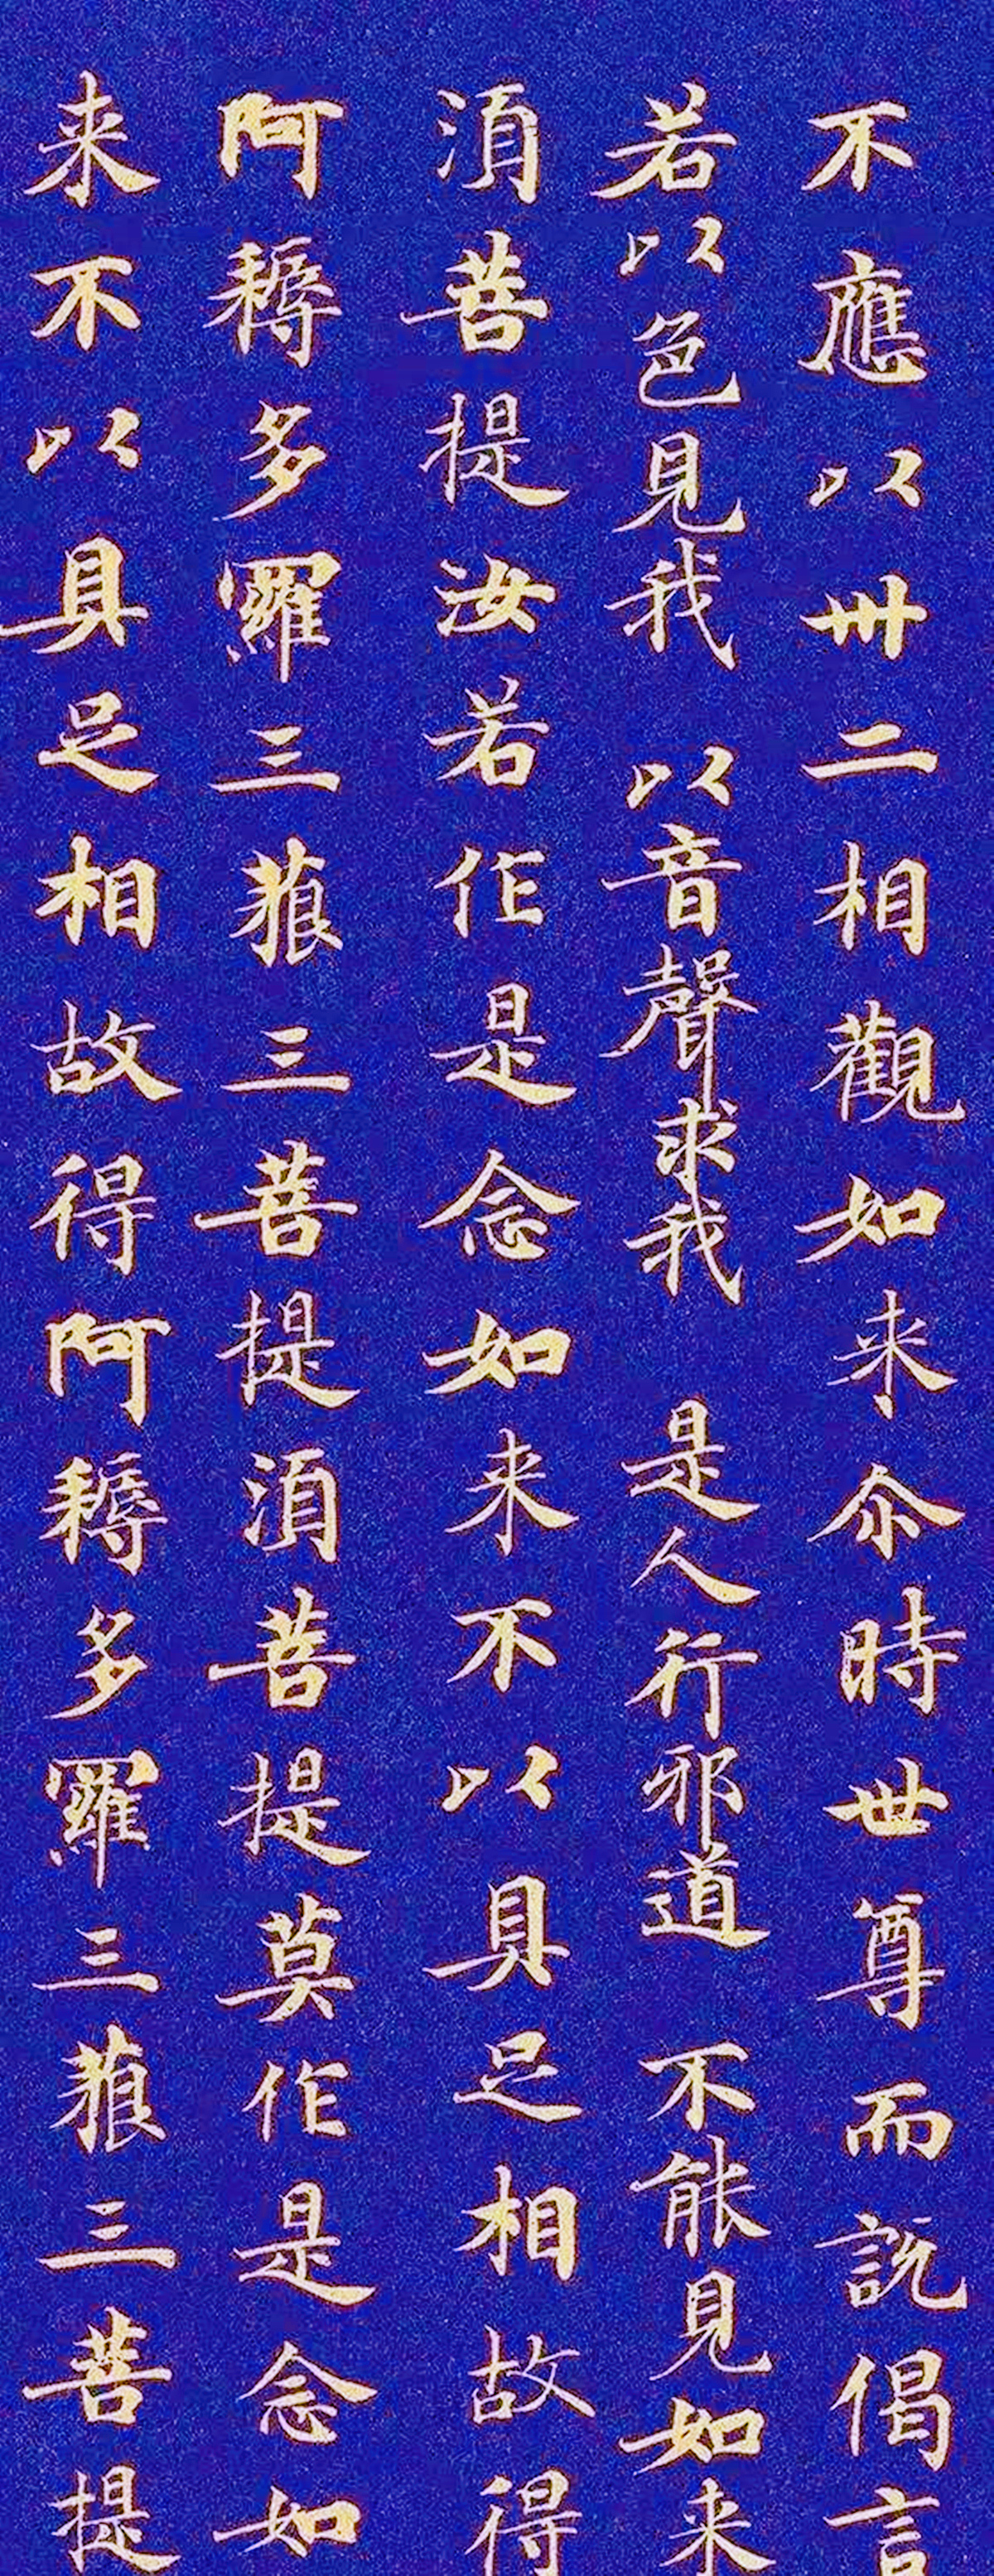 不應以卅二相觀如来尒時世尊而説偈言
若以色見我 以音聲求我 是人行邪道 不能見如来
湏菩提汝若作是念如来不以具足相故得
阿耨多羅三藐三菩提湏菩提莫作是念如
来不以具足相故得阿耨多羅三藐三菩提